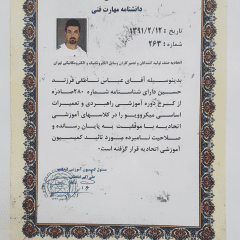 دانشنامه مهارت فنی
تاریخ : ۱۳۹۱/۲/۱۲
شماره : ۲۶۳
اتحادیه صنف تولید کنندگان و تعمیرکاران وسایل الکترونیک و الکترونیکی تهران
بدینوسیله آقای عباس ناطقی فرزند
حسین دارای شناسنامه شماره ۲۸۰ صادره
از کرج دوره آموزشی راهبردی و تعمیرات
اساسی میکروویو را در کلاسهای آموزشی
اتحادیه با موفقیت به پایان رسانده و
صلاحیت نامبرده مورد تائید کمیسیون
آموزشی اتحادیه قرار گرفته است.
مسئول کمیسیون آموزشی اتحادیه